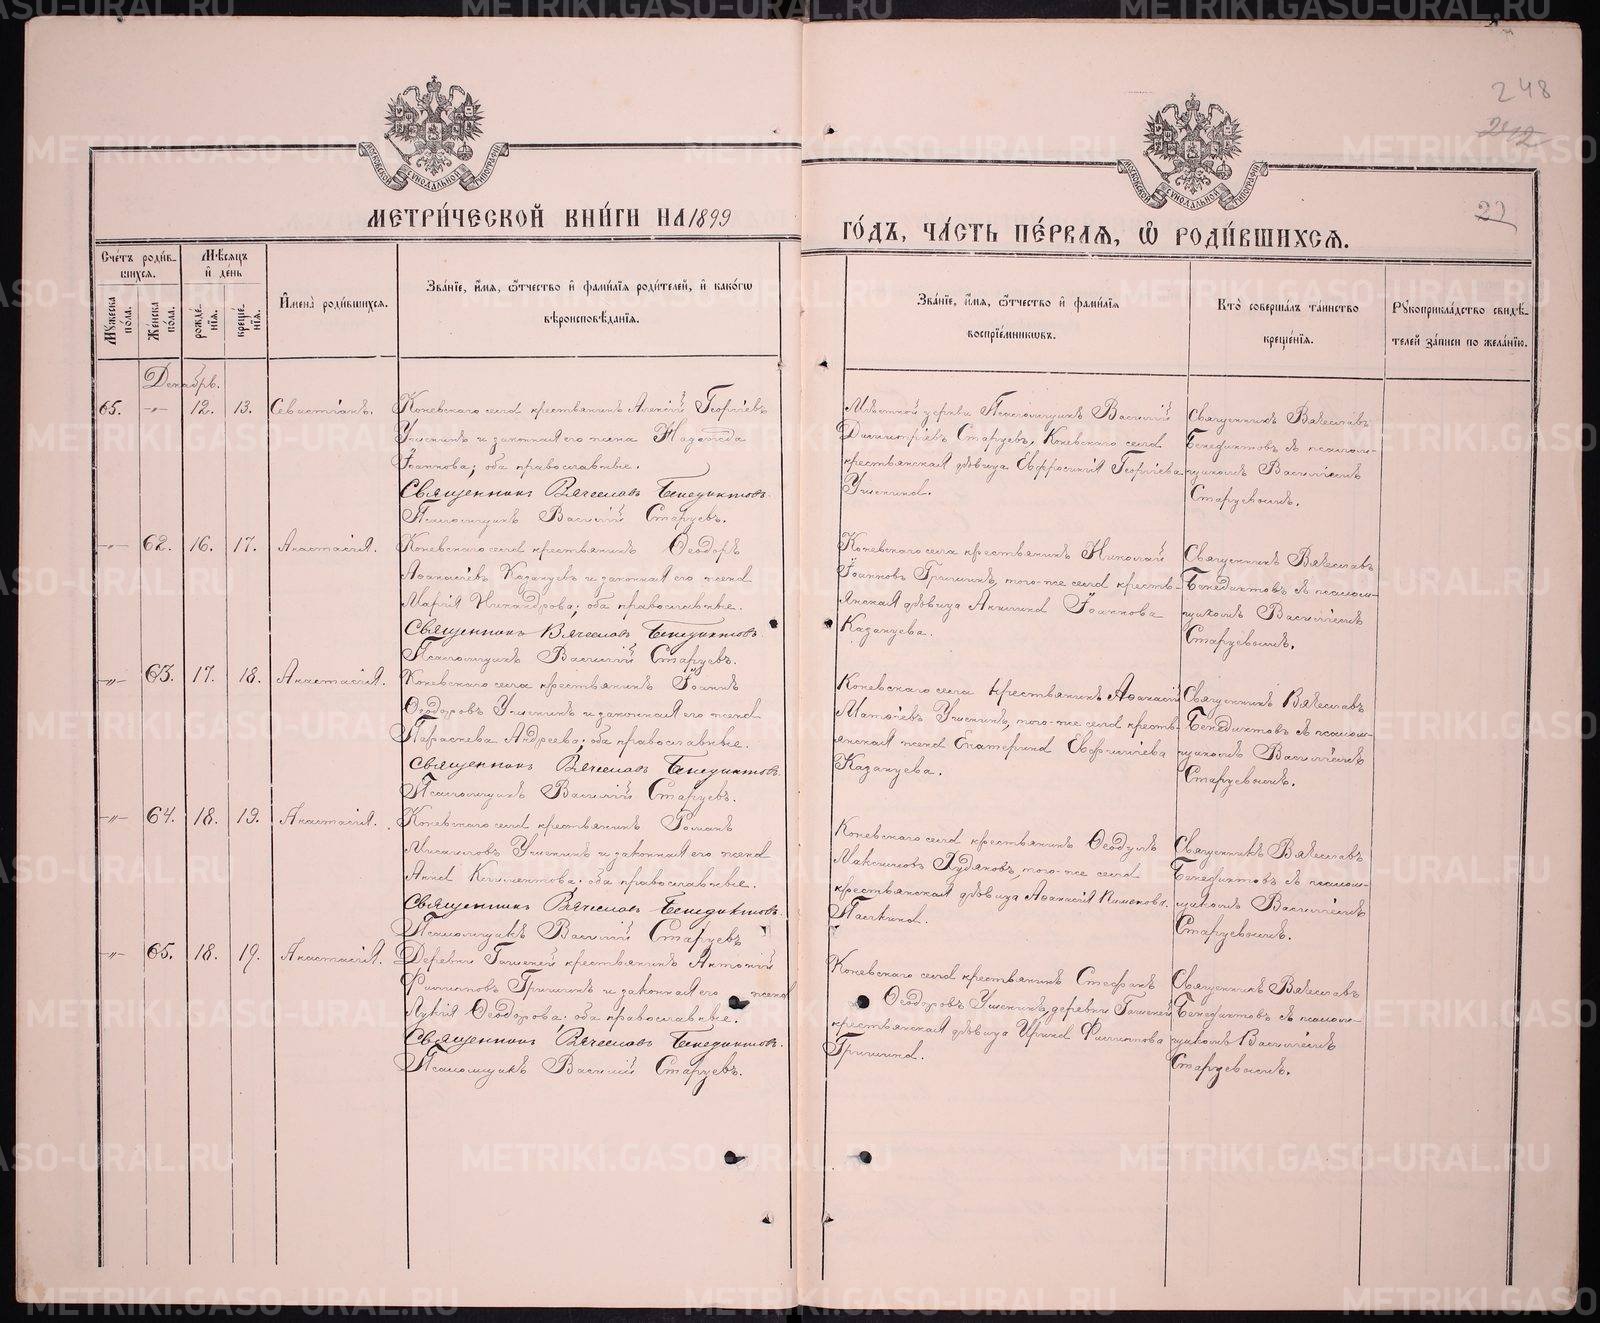 248
242
22
МОСКОВСКОЙ СѴНОДАЛЬНОЙ ТИПОГРАФІИ
МОСКОВСКОЙ СѴНОДАЛЬНОЙ ТИПОГРАФІИ
МЕТРИ́ЧЕСКОЙ КНИ́ГИ НА 1899
ГО́ДЪ, ЧА́СТЬ ПЕ́РВАѦ, Ѡ РОДИ́ВШИХСѦ.
Сче́тъ роди́в-
шихсѧ.
Мѣ́сѧцъ
и҆ де́нь
Мꙋ́жеска по́ла.
Же́нска по́ла.
рожде́-
нїѧ.
креще́-
нїѧ.
И҆мена̀ роди́вшихсѧ.
Зва́нїе, и҆́мѧ, ѻ҆́тчество и҆ фами́лїѧ роди́телей, и҆ како́гѡ
вѣроисповѣ́данїѧ.
Зва́нїе, и҆́мѧ, ѻ҆́тчество и҆ фами́лїѧ
воспрїе́мникѡвъ.
Кто̀ соверша́лъ та́инство
креще́нїѧ.
Рꙋкоприкла́дство свидѣ́-
телей за́писи по жела́нїю.
Декабрь.
65. -"- 12. 13. Севастіанъ.
Коневскаго села крестьянинъ Алексій Георгіевъ
Ушенинъ и законная его жена Надежда
Іоаннова; оба православные.
Священникъ Вячеславъ Бенедиктовъ.
Псаломщикъ Василій Старцевъ.
Мѣстной церкви Псаломщикъ Василій
Димитріевъ Старцевъ, Коневскаго села
крестьянская дѣвица Евфросинія Георгіева
Ушенина.
Священникъ Вячеславъ
Бенедиктовъ съ псалом-
щикомъ Василіемъ
Старцевымъ.
-"- 62. 16. 17. Анастасія.
Коневскаго села крестьянинъ Ѳеодоръ
Аѳанасіевъ Казанцевъ и законная его жена
Марія Никандрова; оба православные.
Священникъ Вячеславъ Бенедиктовъ.
Псаломщикъ Василій Старцевъ.
Коневскаго села крестьянинъ Николай
Іоанновъ Гришинъ, того-же села кресть-
янская дѣвица Акилина Іоаннова
Казанцева.
Священникъ Вячеславъ
Бенедиктовъ съ псалом-
щикомъ Василіемъ
Старцевымъ.
-"- 63. 17. 18. Анастасія.
Коневскаго села крестьянинъ Іоаннъ
Ѳеодоровъ Ушенинъ и законная его жена
Параскева Андреева; оба православные.
Священникъ Вячеславъ Бенедиктовъ.
Псаломщикъ Василій Старцевъ.
Коневскаго села крестьянинъ Аѳанасій
Матѳіевъ Ушенинъ, того-же села кресть-
янская жена Екатерина Евфиміева
Казанцева.
Священникъ Вячеславъ
Бенедиктовъ съ псалом-
щикомъ Василіемъ
Старцевымъ.
-"- 64. 18. 19. Анастасія.
Коневскаго села крестьянинъ Романъ
Михаиловъ Ушенинъ и законная его жена
Анна Климентова; оба православные.
Священникъ Вячеславъ Бенедиктовъ.
Псаломщикъ Василій Старцевъ
Коневскаго села крестьянинъ Ѳеодулъ
Максимовъ Худяковъ, того-же села
крестьянская дѣвица Аѳанасія
Паскина.
Священникъ Вячеславъ
Бенедиктовъ съ псалом-
щикомъ Василіемъ
Старцевымъ.
-"- 65. 18. 19. Анастасія.
Деревни крестьянинъ Антоній
Филипповъ Гришинъ и законная его жена
Лукія Ѳеодорова; оба православные.
Священникъ Вячеславъ Бенедиктовъ.
Псаломщикъ Василій Старцевъ.
Коневскаго села крестьянинъ Стефанъ
Ѳеодоровъ Ушенинъ, деревни
крестьянская дѣвица Ирина Филиппова
Гришина.
Священникъ Вячеславъ
Бенедиктовъ съ псалом-
щикомъ Василіемъ
Старцевымъ.
METRIKI.GASO-URAL.RU